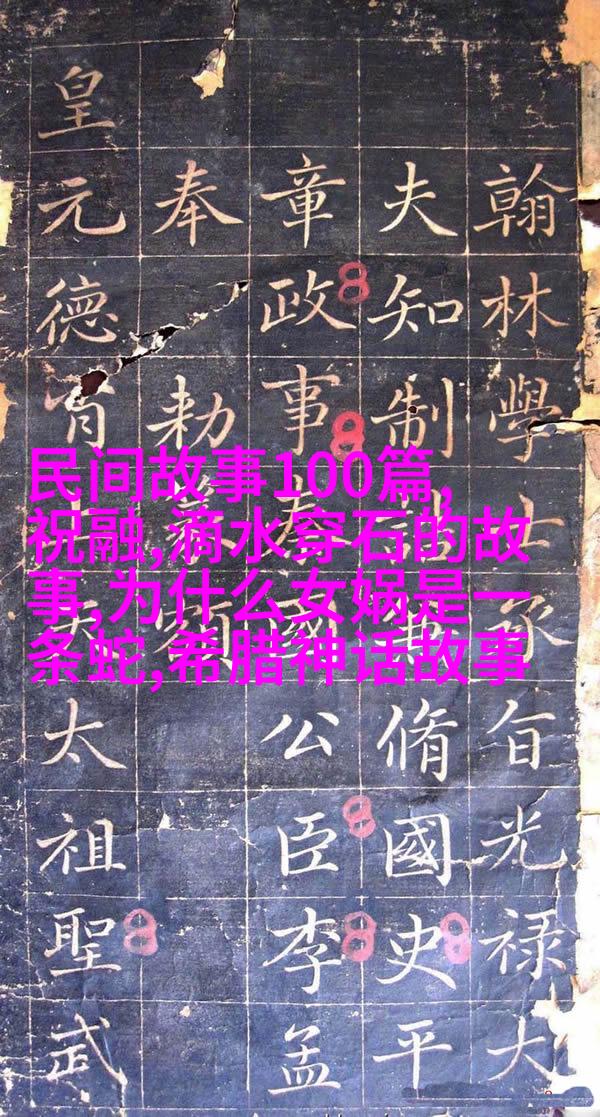 民间故事100篇,
祝融,滴水穿石的故
事,为什么女娲是一
条蛇,希腊神话故事
翰林學士承旨光禄大
夫知制誥兼脩國史平
章政事秦國公臣李孟
奉勑篆額
皇元德育太祖聖武